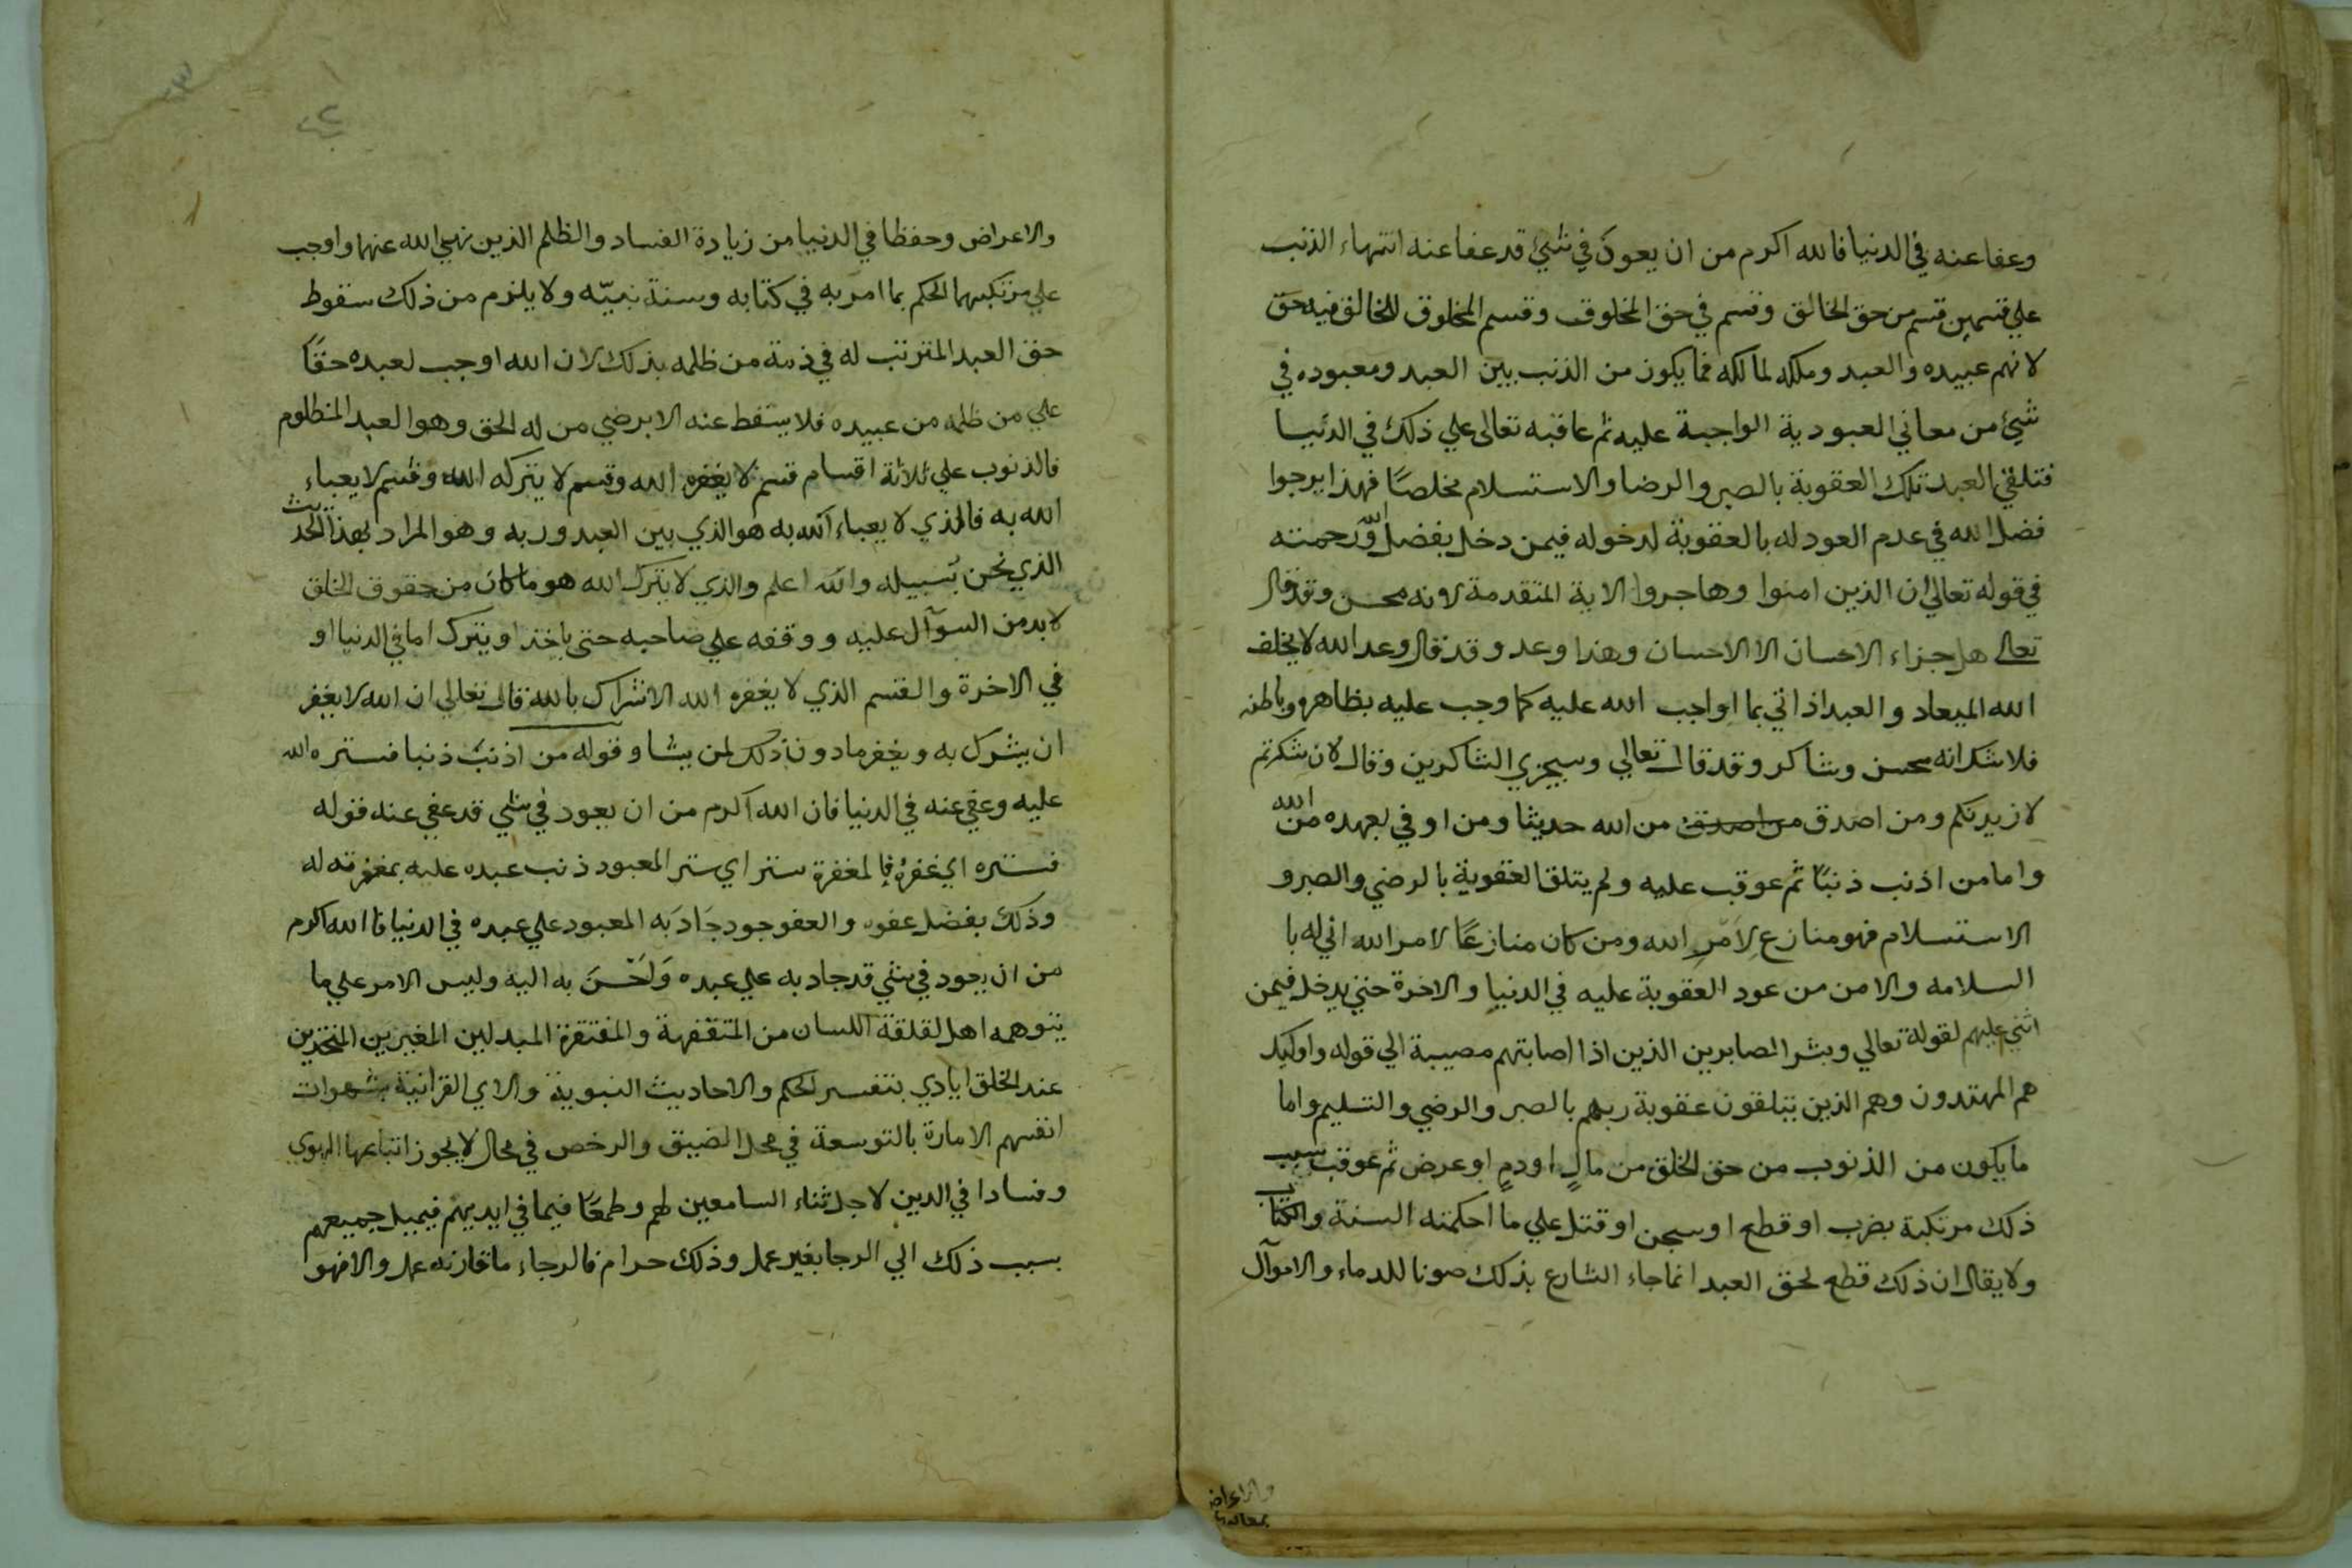 وعفا عنه في الدنيا فالله اكرم من ان يعود في شيئ قد عفا عنه انتهاء الذنب
علي قسمين قسم من حق الخالق وقسم في حق المخلوق وقسم المخلوق للخالق فيه حق
لانهم عبيده والعبد وملكه لمالكه فما يكون من الذنب بين العبد ومعبوده في
شيئ من معاني العبودية الواجبة عليه ثم عاقبه تعالى علي ذلك في الدنيا
فتلقي العبد تلك العقوبة بالصبر والرضا والاستسلام مخلصًا فهذا يرجوا
فضل الله في عدم العود له بالعقوبة لدخوله فيمن دخل بفضل الله ورحمته
في قوله تعالي ان الذين امنوا وهاجروا الاية المتقدمة لانه محسن وقد قال
تعالى هل جزاء الاحسان الا الاحسان وهذا وعد وقد قال وعد الله لا يخلف
الله الميعاد والعبد اذا اتي بما اواجب الله عليه كما وجب عليه بظاهره وباطنه
فلا شك انه محسن وشاكر وقد قال تعالي وسيجزي الشاكرين وقال لان شكرتم
لازيدنكم ومن اصدق من اصدق من الله حديثا ومن اوفي بعهده من الله
واما من اذنب ذنبًا ثم عوقب عليه ولم يتلق العقوبة بالرضي والصبر و
الاستسلام فهو منازع لامر الله ومن كان منازعًا لامر الله اني له با
السلامه والامن من عود العقوبة عليه في الدنيا والاخرة حتي يدخل فيمن
اثني عليهم لقوله تعالي وبشر الصابرين الذين اذا اصابتهم مصيبة الي قوله واوليك
هم المهتدون وهم الذين يتلقون عقوبة ربهم بالصبر والرضي والتسليم واما
ما يكون من الذنوب من حق الخلق من مالٍ او دمٍ او عرض ثم عوقب بسبب
ذلك مرتكبة بضرب او قطع او سجن او قتل علي ما احكمته السنة والكتاب
ولا يقال ان ذلك قطع لحق العبد انما جاء الشارع بذلك صونا للدماء والاموآل
والاعراض
والاعراض وحفظا في الدنيا من زيادة الفساد والظلم الذين نهي الله عنهما واوجب
علي مرتكبهما الحكم بما امر به في كتابه وسنة نبيّه ولا يلزم من ذلك سقوط
حق العبد المترتب له في ذمة من ظلمه بذلك لان الله اوجب لعبده حقًا
علي من ظلمه من عبيده فلا يسقط عنه الا برضي من له الحق وهو العبد المظلوم
فالذنوب علي ثلاثة اقسام قسم لا يغفره الله وقسم لا يتركه الله وقسم لا يعباء
الله به فالذي لا يعباء الله به هو الذي بين العبد وربه وهو المراد بهذا الحديث
الذي نحن بسبيله والله اعلم والذي لا يترك الله هو ما كان من حقوق الخلق
لا بد من السوآل عليه ووقفه علي صاحبه حتى ياخذ او يترك اما في الدنيا او
في الاخرة والقسم الذي لا يغفره الله الاشراك بالله قال تعالي ان الله لا يغفر
ان يشرك به ويغفر ما دون ذلك لمن يشا وقوله من اذنب ذنبا فستره الله
عليه وعفي عنه في الدنيا فان الله اكرم من ان يعود في شي قد عفي عنه فقوله
فستره اي غفرهُ فالمغفرة ستر اي ستر المعبود ذنب عبده عليه بمغفرته له
وذلك بفضل عفوه والعفو جود جَاد به المعبود علي عبده في الدنيا فا الله اكرم
من ان يعود في شي قد جاد به علي عبده وَاحْسنَ به اليه وليس الامر علي ما
يتوهمه اهل لقلقة اللسان من المتفقهة والمفتقرة المبدلين المغيرين
عند الخلق ايادي بتفسير الحكم والاحاديث النبوية والاي القرانية بشهوات
انفسهم الامارة بالتوسعة في محل الضيق والرخص في محال لا يجوز اتباعها الهوي
وفسادا في الدين لاجل ثناء السامعين لهم وطمعًا فيما في ايديهم فيميل جميعهم
بسبب ذلك الي الرجا بغير عمل وذلك حرام فالرجاء ما قارنه عمل والا فهو